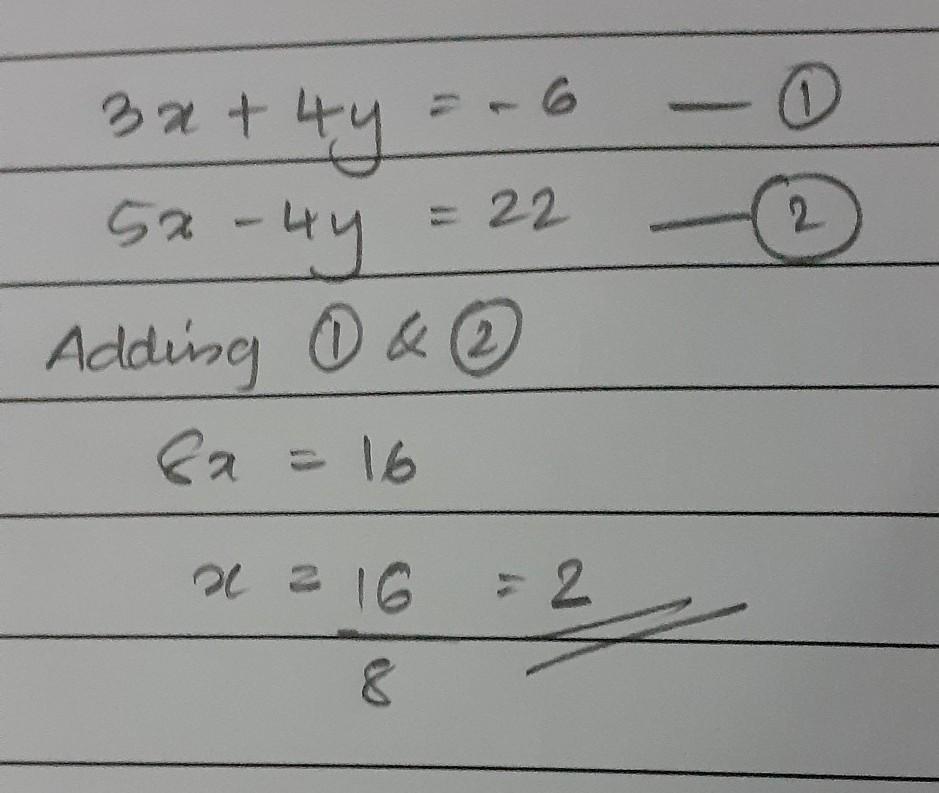 3x + 4y = - 6 — ①
5x - 4y = 22 — ②
Adding ① & ②
8x = 16
x = 16/8 = 2